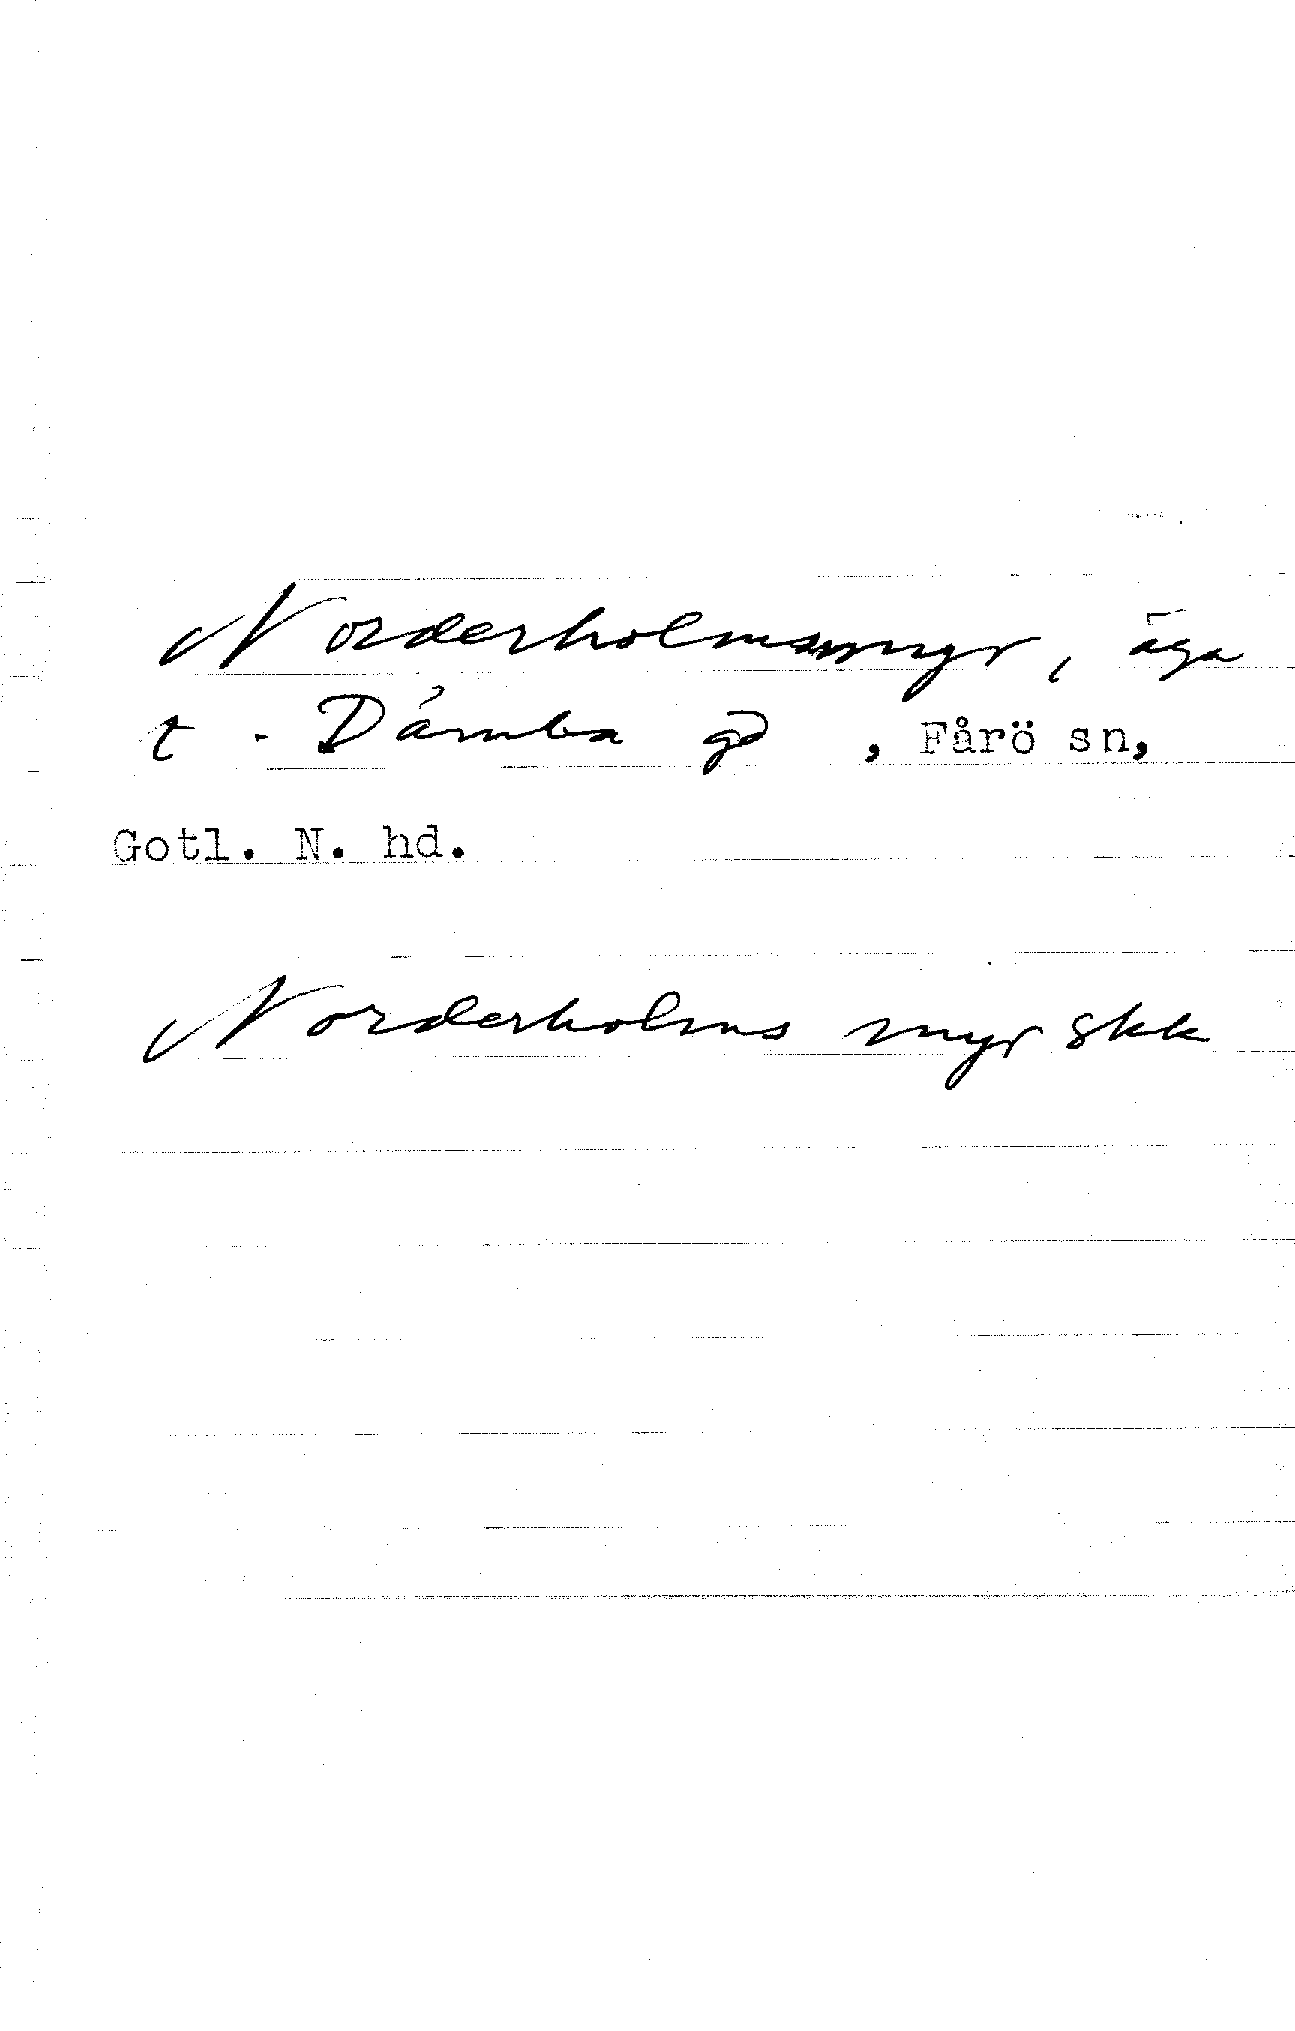 Norderholmsmyr, äga
t. Dämba gd, Fårö sn,
Gotl. N. hd.
Norderholms myr skk